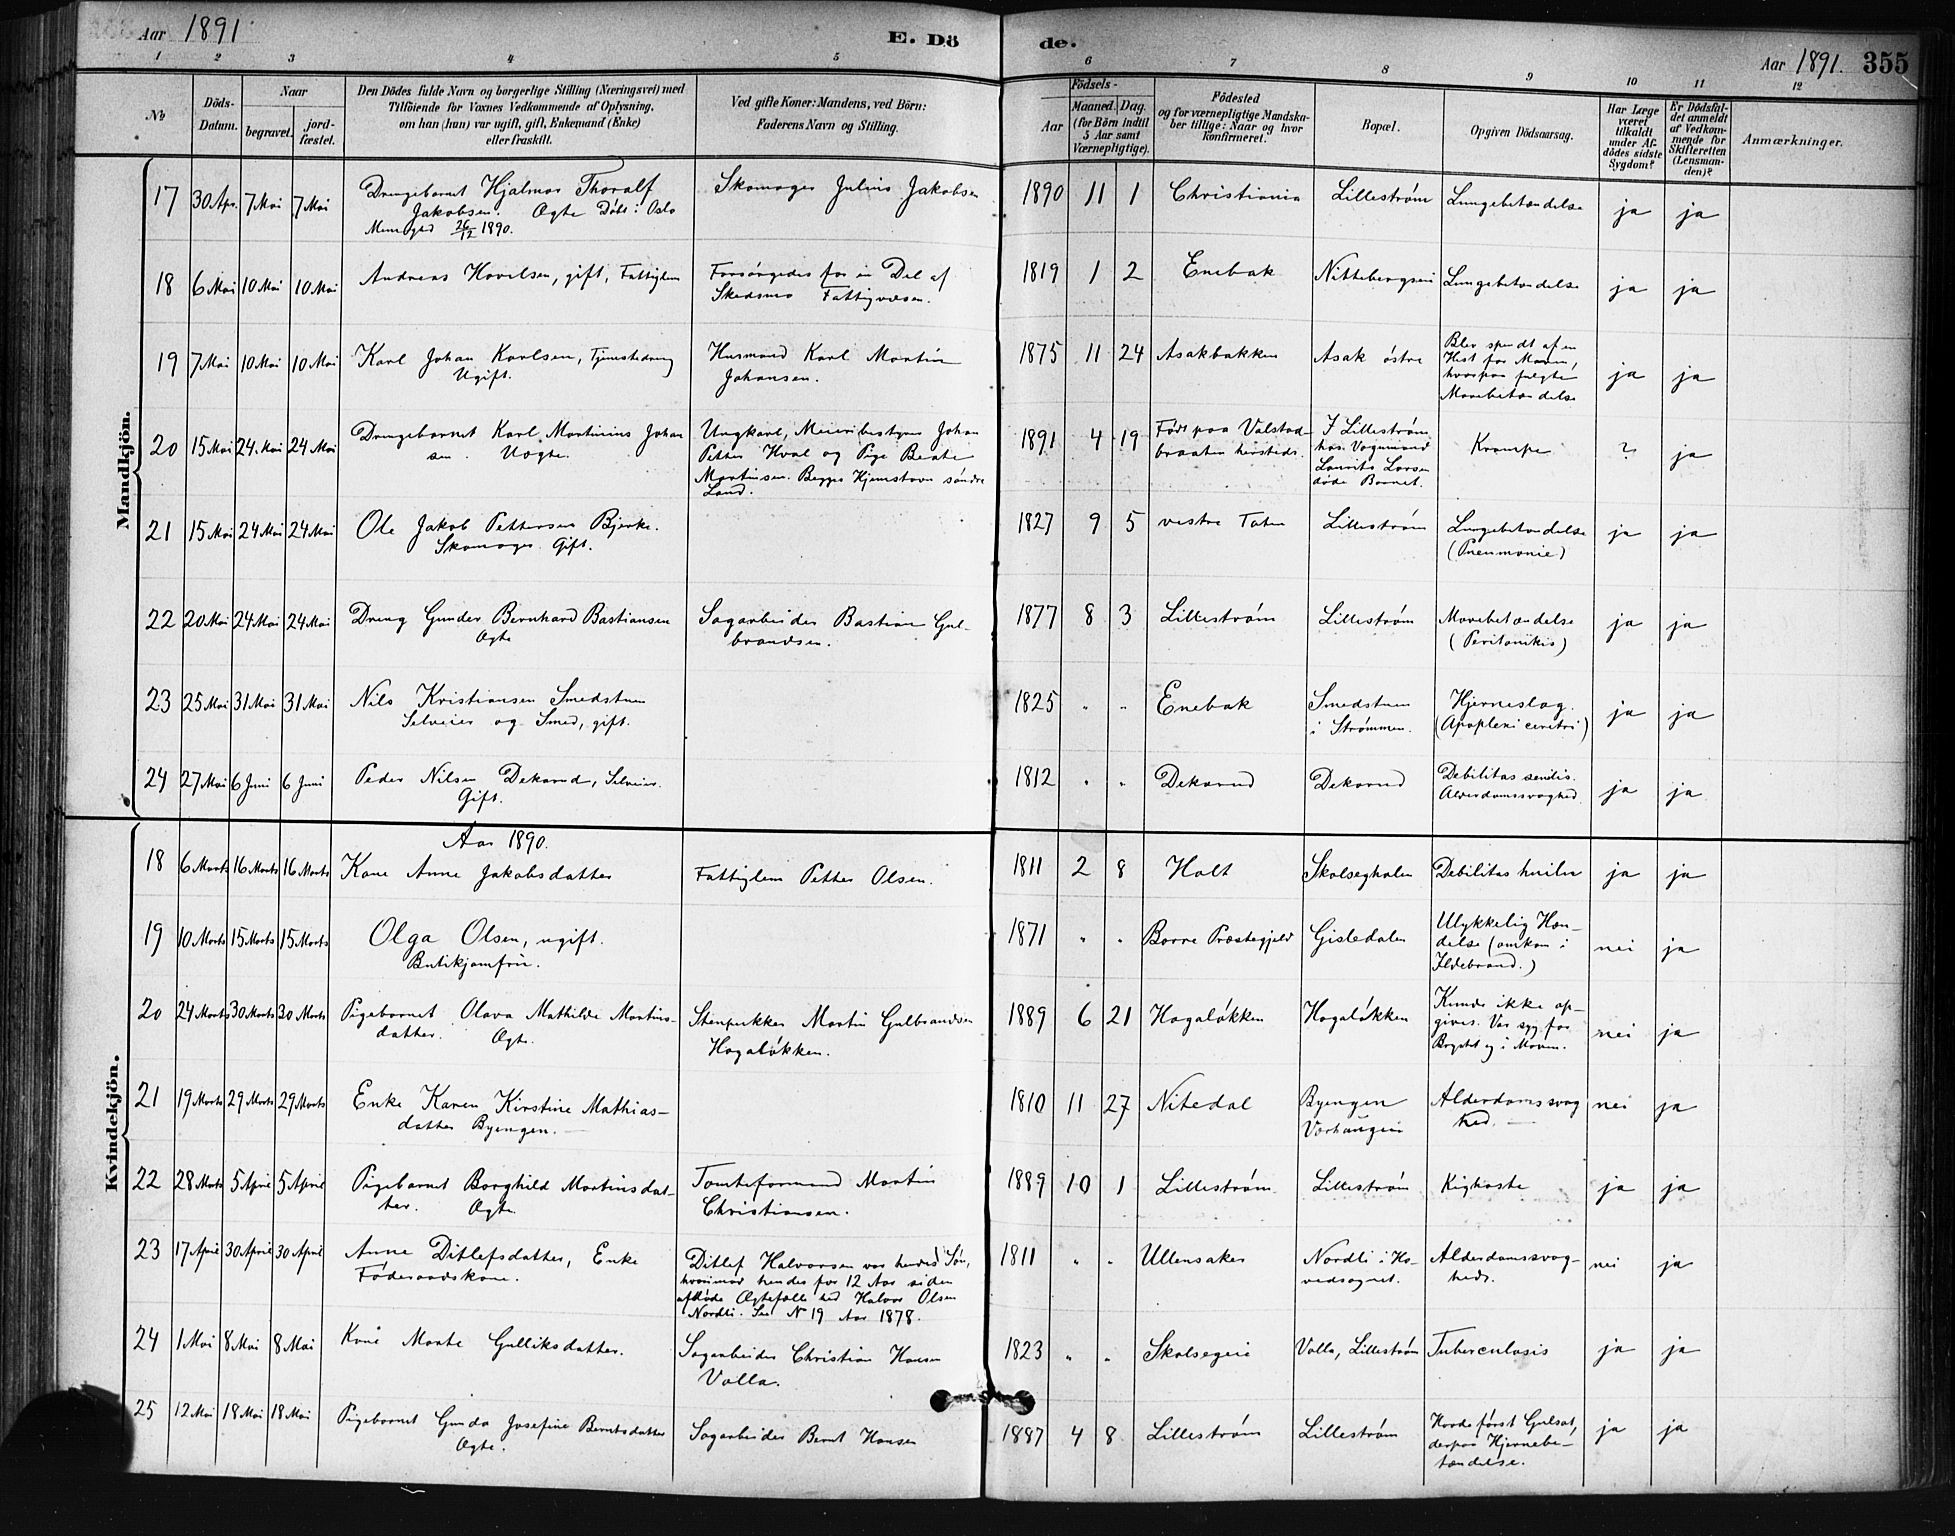 Aar 1891
E. Dö
de.
Aar 1891.
355
1 2 3 4 5 6 7 8 9 10 11 12
No
Döds-
Datum.
Naar
begravet.
jord-
fæstet.
Den Dödes fulde Navn og borgerlige Stilling (Næringsvei) med
Tilföiende for Voxnes Vedkommende af Oplysning,
om han (hun) var ugift, gift, Enkemand (Enke)
eller fraskilt.
Ved gifte Koner: Mandens, ved Börn:
Faderens Navn og Stilling.
Födsels-
Aar
Maaned. Dag.
(for Börn indtil
5 Aar samt
Værnepligtige).
Födested
og for værnepligtige Mandska-
ber tillige: Naar og hvor
konfirmeret.
Bopæl.
Opgiven Dödsaarsag.
Har Læge
været
tilkaldt
under Af-
dödes sidste
Sygdom?
Er Dödsfal-
det anmeldt
af Vedkom-
mende for
Skifteretten
(Lensman-
den)?
Anmærkninger.
Mandkjön.
17 30 Apr. 7 Mai 7 Mai
Drengebarnet Hjalmar Thoralf
Jakobsen. Ægte Döbt i Oslo
Menighed 26/12 1890.
Skomager Julius Jakobsen
1890 11 1 Christiania Lillestrøm Lungebetændelse ja ja
18 6 Mai 10 Mai 10 Mai
Andreas Hovelsen, gift, Fattiglem
Forsørgedes for en Del af
Skedsmo Fattigvæsen.
1819 1 2 Enebak Nittebergseie Lungebetændelse ja ja
19 7 Mai 10 Mai 10 Mai
Karl Johan Karlsen, Tjenestedreng
Ugift.
Husmand Karl Martin
Johansen.
1875 11 24 Asakbakken Asak østre
Blev spændt af en
Hest for Maven,
hvorpaa fulgte
Mavebetændelse
ja ja
20 15 Mai 24 Mai 24 Mai
Drengebarnet Karl Martinius Johan
sen. Uægte.
Ungkarl, Meieribestyrer Johan
Petter Hval og Pige Beate
Martinsen. Begges Hjemstavn søndre
Land.
1891 4 19
Født paa Valstad-
braaten hersteds.
I Lillestrøm
hos Vognmand
Laurits Larsen
døde Barnet.
Krampe ? ja
21 15 Mai 24 Mai 24 Mai
Ole Jakob Pettersen Bjerke.
Skomager. Gift.
1827 9 5 vestre Toten Lillestrøm
Lungebetændelse
(Pneumonie)
ja ja
22 20 Mai 24 Mai 24 Mai
Dreng Gunder Bernhard Bastiansen
Ægte
Sagarbeider Bastian Gul-
brandsen.
1877 8 3 Lillestrøm Lillestrøm
Mavebetændelse
(Peritonikis)
ja ja
23 25 Mai 31 Mai 31 Mai
Nils Kristiansen Smedstuen
Selveier og Smed, gift.
1825 " " Enebak
Smedstuen
i Strømmen.
Hjerneslag.
(Apoplexi cerebri)
ja ja
24 27 Mai 6 Juni 6 Juni
Peder Nilsen Dekerud, Selveier.
Gift.
1812 " " Dekerud Dekerud
Debilitas senilis.
Alderdomssvaghed.
ja ja
Kvindekjön.
Aar 1890.
18 6 Marts 16 Marts 16 Marts
Kone Anne Jakobsdatter
Fattiglem Petter Olsen.
1811 2 8 Holt Skolseghalen Debilitas ja ja
19 10 Marts 15 Marts 15 Marts
Olga Olsen, ugift.
Butikjomfru.
1871 " " Borre Præstegjeld Gisledalen
Ulykkelig Hæn-
delse (omkom i
Ildebrand.)
nei ja
20 24 Marts 30 Marts 30 Marts
Pigebarnet Olava Mathilde Martins-
datter. Ægte.
Stenpukker Martin Gulbrandsen
Hagaløkken.
1889 6 21 Hagaløkken Hagaløkken
Kunde ikke op-
gives. Var syg for
Brystet og i Maven.
nei ja
21 19 Marts 29 Marts 29 Marts
Enke Karen Kirstine Mathias-
datter Byengen.
1810 11 27 Nitedal
Byengen
Varhaugeie
Alderdomssvag
hed.
nei ja
22 28 Marts 5 April 5 April
Pigebarnet Borghild Martinsdat-
ter. Ægte.
Tomteformand Martin
Christiansen.
1889 10 1 Lillestrøm Lillestrøm Kighoste ja ja
23 17 April 30 April 30 April
Anne Ditlefsdatter, Enke
Føderaadskone.
Ditlef Halvorsen var hendes Søn,
hvorimod hendes for 12 Aar siden
afdøde Ægtefælle hed Halvor Olsen
Nordli. Se N 19 Aar 1878.
1811 " " Ullensaker
Nordli i Ho-
vedsognet.
Alderdomssvag-
hed.
nei ja
24 1 Mai 8 Mai 8 Mai
Kone Marte Gulliksdatter.
Sagarbeider Christian Hansen
Volla.
1823 " " Skolsegeie Volla, Lillestrøm Tuberculosis ja ja
25 12 Mai 18 Mai 18 Mai
Pigebarnet Gunda Josefine Berntsdatter
Ægte.
Sagarbeider Bernt Hansen
1887 4 8 Lillestrøm Lillestrøm
Havde først Gulsot,
derpaa Hjernebe-
tændelse.
ja ja